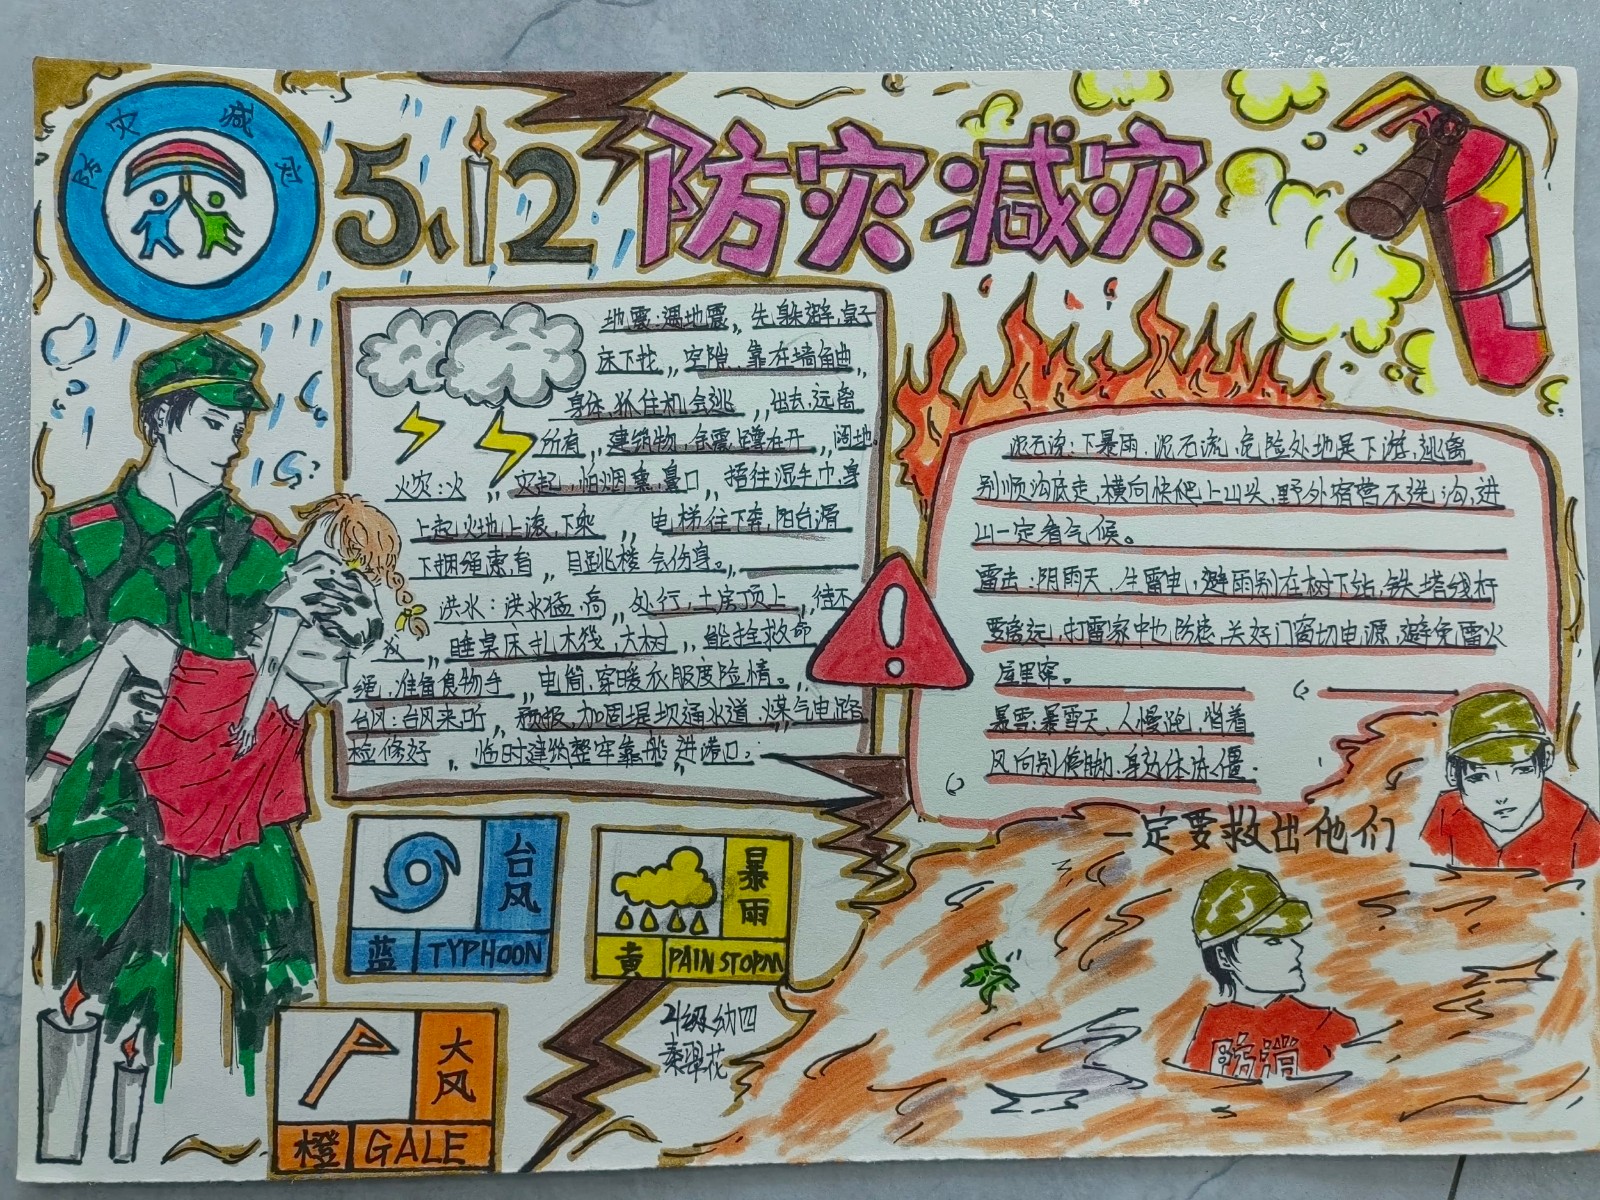 防灾减灾
5.12 防灾减灾
地震:遇地震,,先躲避,桌子
床下找,,空隙,靠在墙角曲,
身体,抓住机会逃,,出去,远离
所有,,建筑物,余震蹲在开,,阔地.
火灾:火,,灾起,怕烟熏,鼻口,,捂住湿手巾,身
上起火地上滚,下来,,电梯往下奔,阳台滑
下捆绳索,盲,,目跳楼会伤身。
洪水:洪水猛,高,,处行,土房顶上,,待不
成,,睡桌床扎木筏,大树,,能拴救命
绳,准备食物手,,电筒,穿暖衣服度险情。
台风:台风来,听,,预报,加固堤坝通水道,煤气电路
检修好,,临时建筑整牢靠,船进港口。
泥石流:下暴雨,泥石流,危险处地是下游,逃离
别顺沟底走,横向快爬上山头,野外宿营不选沟,进
山一定看气候。
雷击:阴雨天,生雷电,避雨别在树下站,铁塔线杆
要离远,打雷家中也防患,关好门窗切电源,避免雷火
屋里窜。
暴雪:暴雪天,人慢跑,背着
风向别停脚,身体冻僵.
一定要救出他们
台风
蓝 TYPHOON
暴雨
黄 PAINSTOPM
大风
橙 GALE
级幼四
秦翠花